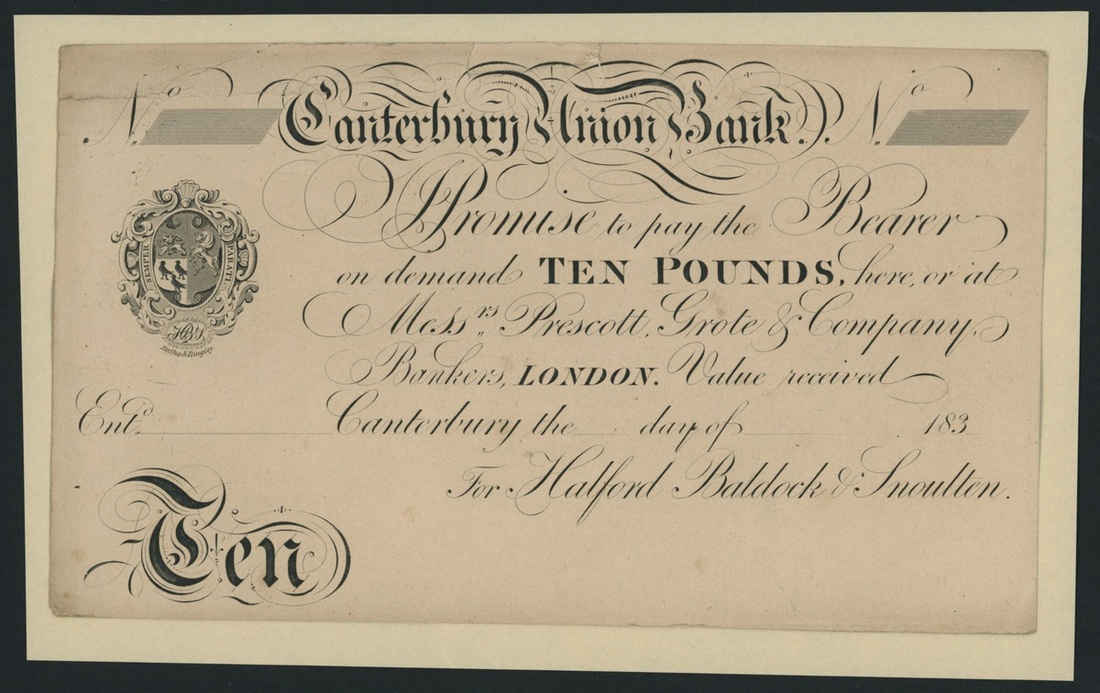 No Canterbury Union Bank. No
I Promise to pay the Bearer
on demand TEN POUNDS, here, or at
Messrs. Prescott, Grote & Company,
Bankers, LONDON. Value received
SEMPER PARATI
HBS
Entd. Canterbury the day of 183
For Halford Baldock & Snoulten.
Ten